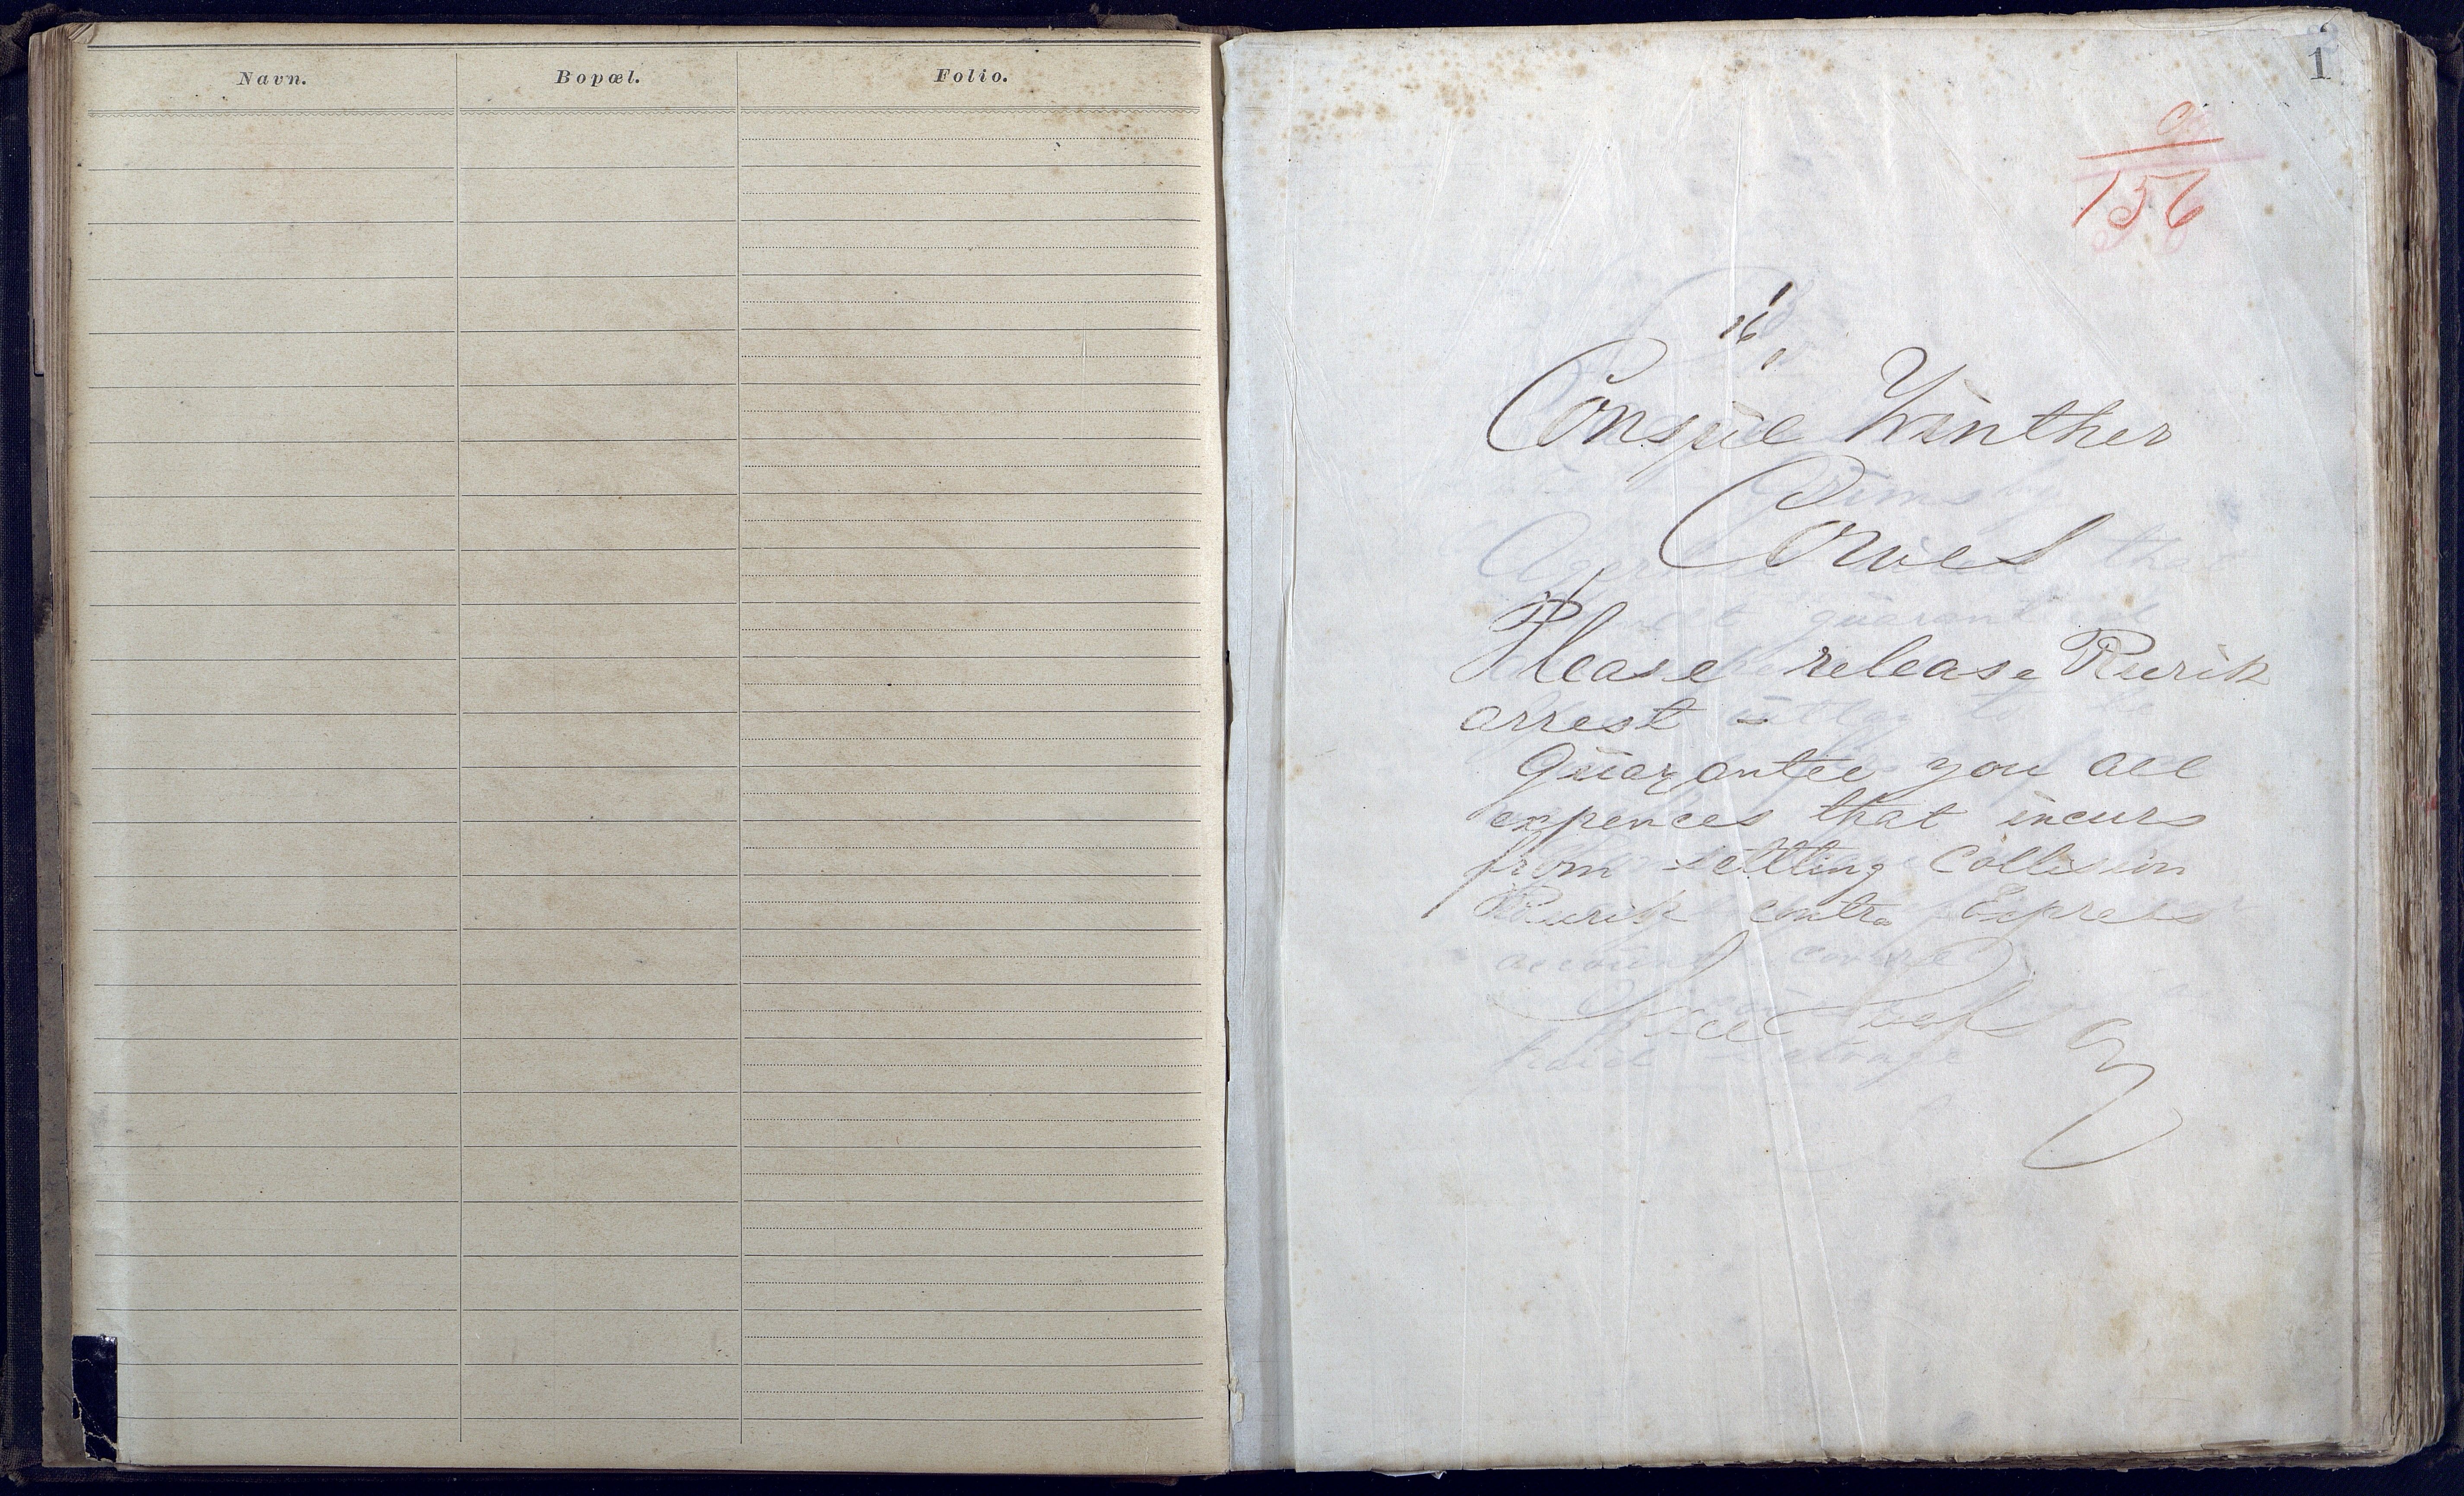 Navn. Bopæl. Folio.
1
156
Consul Winther
Cowes
Please release Rurik
arrest
Guarantee you all
expences that incurs
from settling Collision
Rurik contra Express